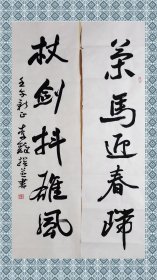 策馬迎春歸
杖劍抖雄風
壬午新正
李毅
書